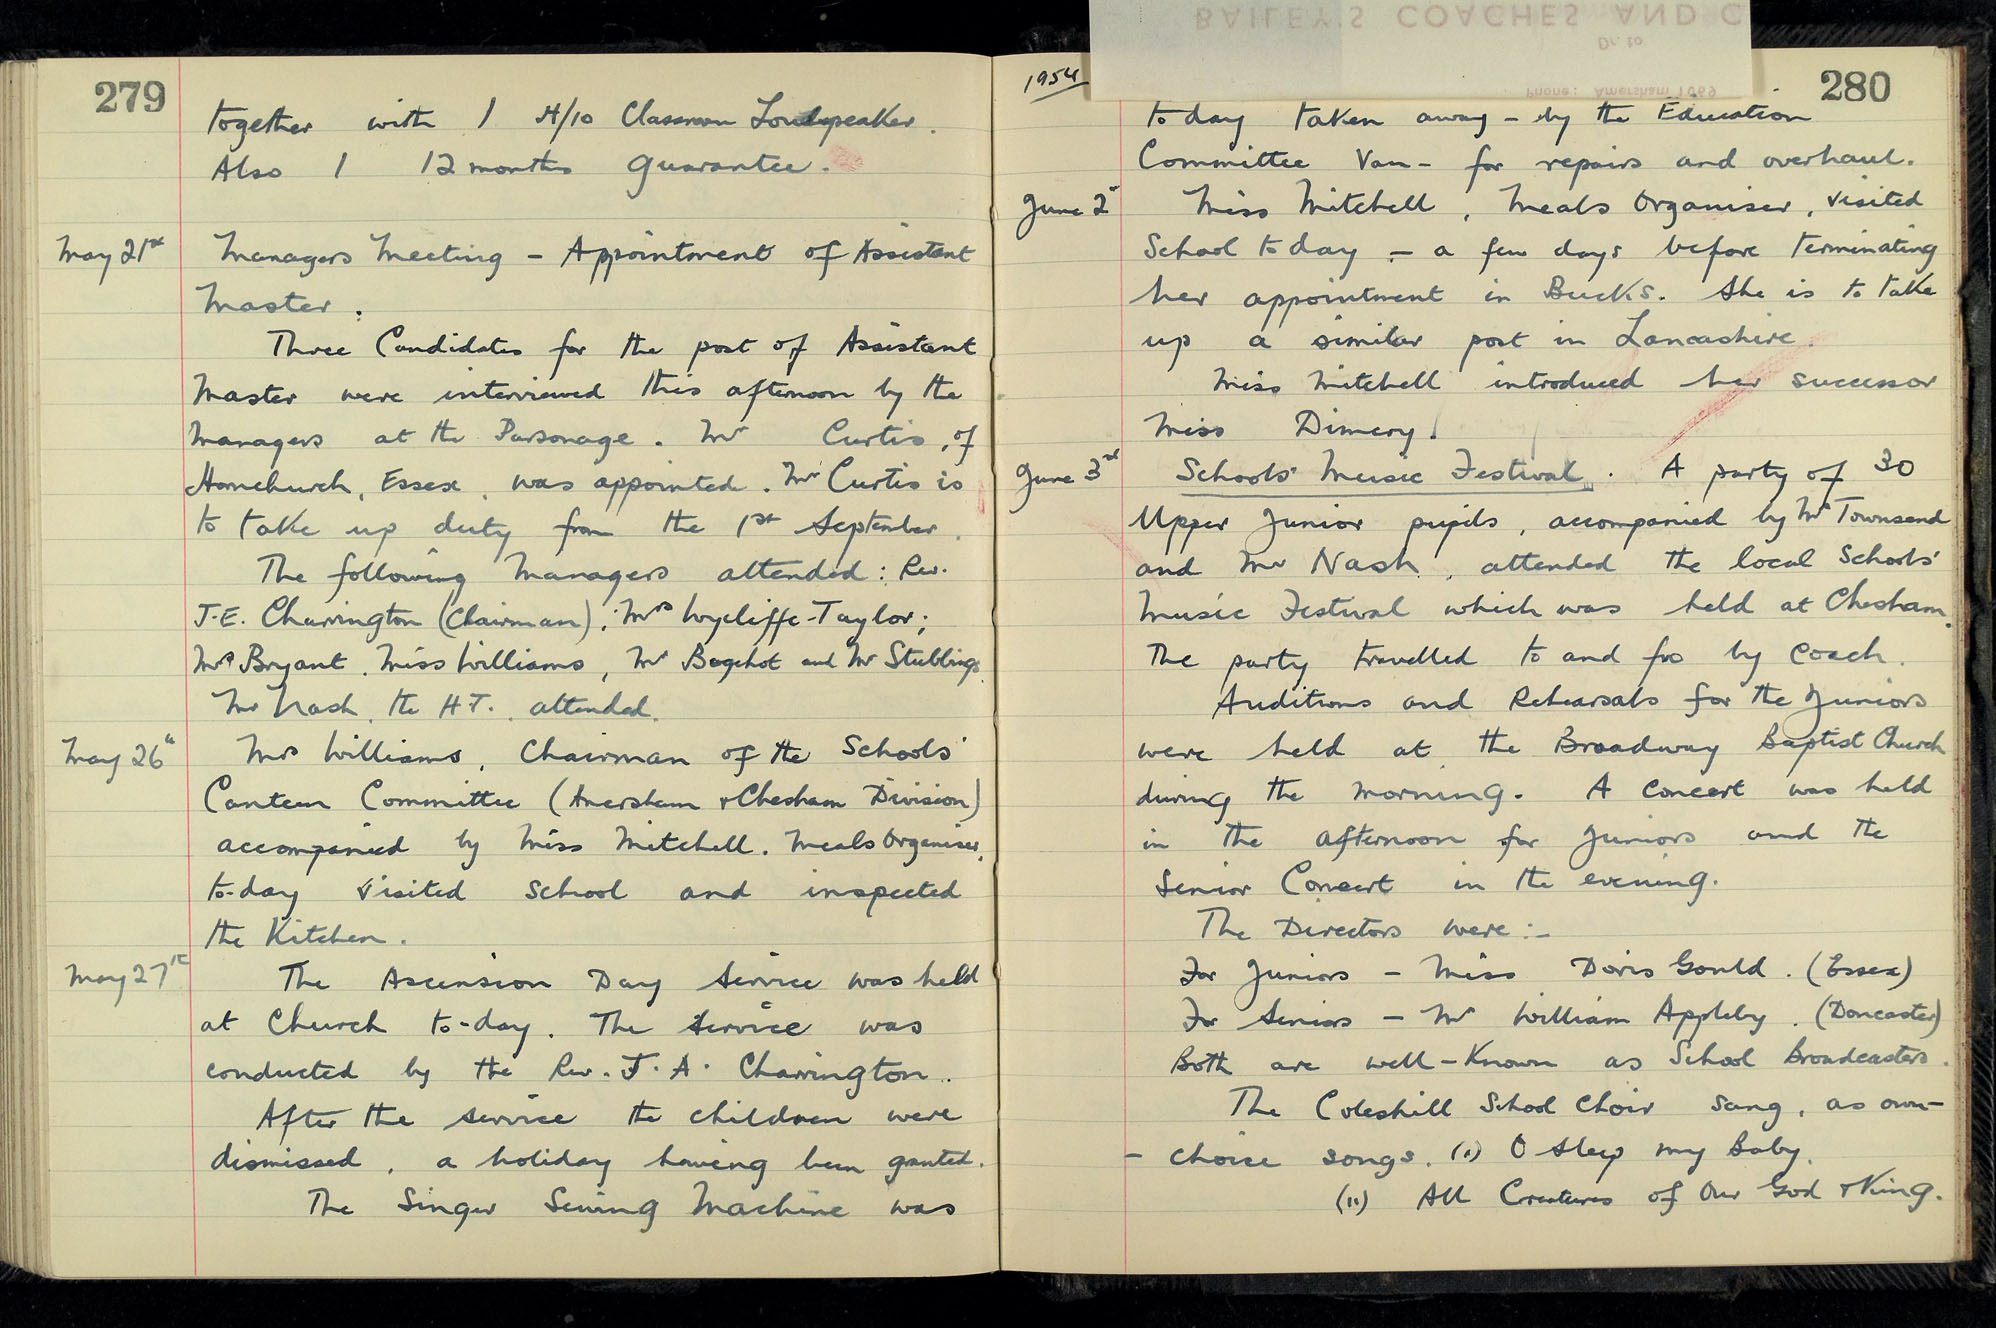 279
together with 1 H/10 Classroom Loudspeaker.
Also 1 12 months guarantee.
May 21st Managers Meeting - Appointment of Assistant
Master.
Three Candidates for the post of Assistant
Master were interviewed this afternoon by the
Managers at the Parsonage. Mr Curtis, of
Hornchurch, Essex, was appointed. Mr Curtis is
to take up duty from the 1st September.
The following Managers attended: Rev.
J.E. Charrington (Chairman); Mrs Wycliffe-Taylor;
Mrs Bryant, Miss Williams, Mr Bagehot and Mr Stubbings.
Mr Nash, the H.T., attended.
May 26th Mrs Williams, Chairman of the Schools'
Canteen Committee (Amersham & Chesham Division)
accompanied by Miss Mitchell, Meals Organiser,
to-day visited school and inspected
the Kitchen.
May 27th The Ascension Day Service was held
at Church to-day. The Service was
conducted by the Rev. J. A. Charrington.
After the service the children were
dismissed, a holiday having been granted.
The Singer Sewing Machine was
BAILEY'S COACHES AND C
Dr. to
Phone: Amersham 1069
1954
280
to day taken away - by the Education
Committee Van - for repairs and overhaul.
June 2nd Miss Mitchell, Meals Organiser, visited
School to day - a few days before terminating
her appointment in Bucks. She is to take
up a similar post in Lancashire.
Miss Mitchell introduced her successor
Miss Dimery.
June 3rd Schools' Music Festival. A party of 30
Upper Junior pupils, accompanied by Mr Townsend
and Mr Nash, attended the local Schools'
Music Festival which was held at Chesham.
The party travelled to and fro by coach.
Auditions and Rehearsals for the Juniors
were held at the Broadway Baptist Church
during the morning. A Concert was held
in the afternoon for Juniors and the
Senior Concert in the evening.
The Directors were:-
For Juniors - Miss Doris Gould. (Essex)
For Seniors - Mr William Appleby. (Doncaster)
Both are well-known as School Broadcasters.
The Coleshill School Choir sang, as own-
- choice songs. (i) O Sleep my Baby.
(ii) All Creatures of Our God & King.